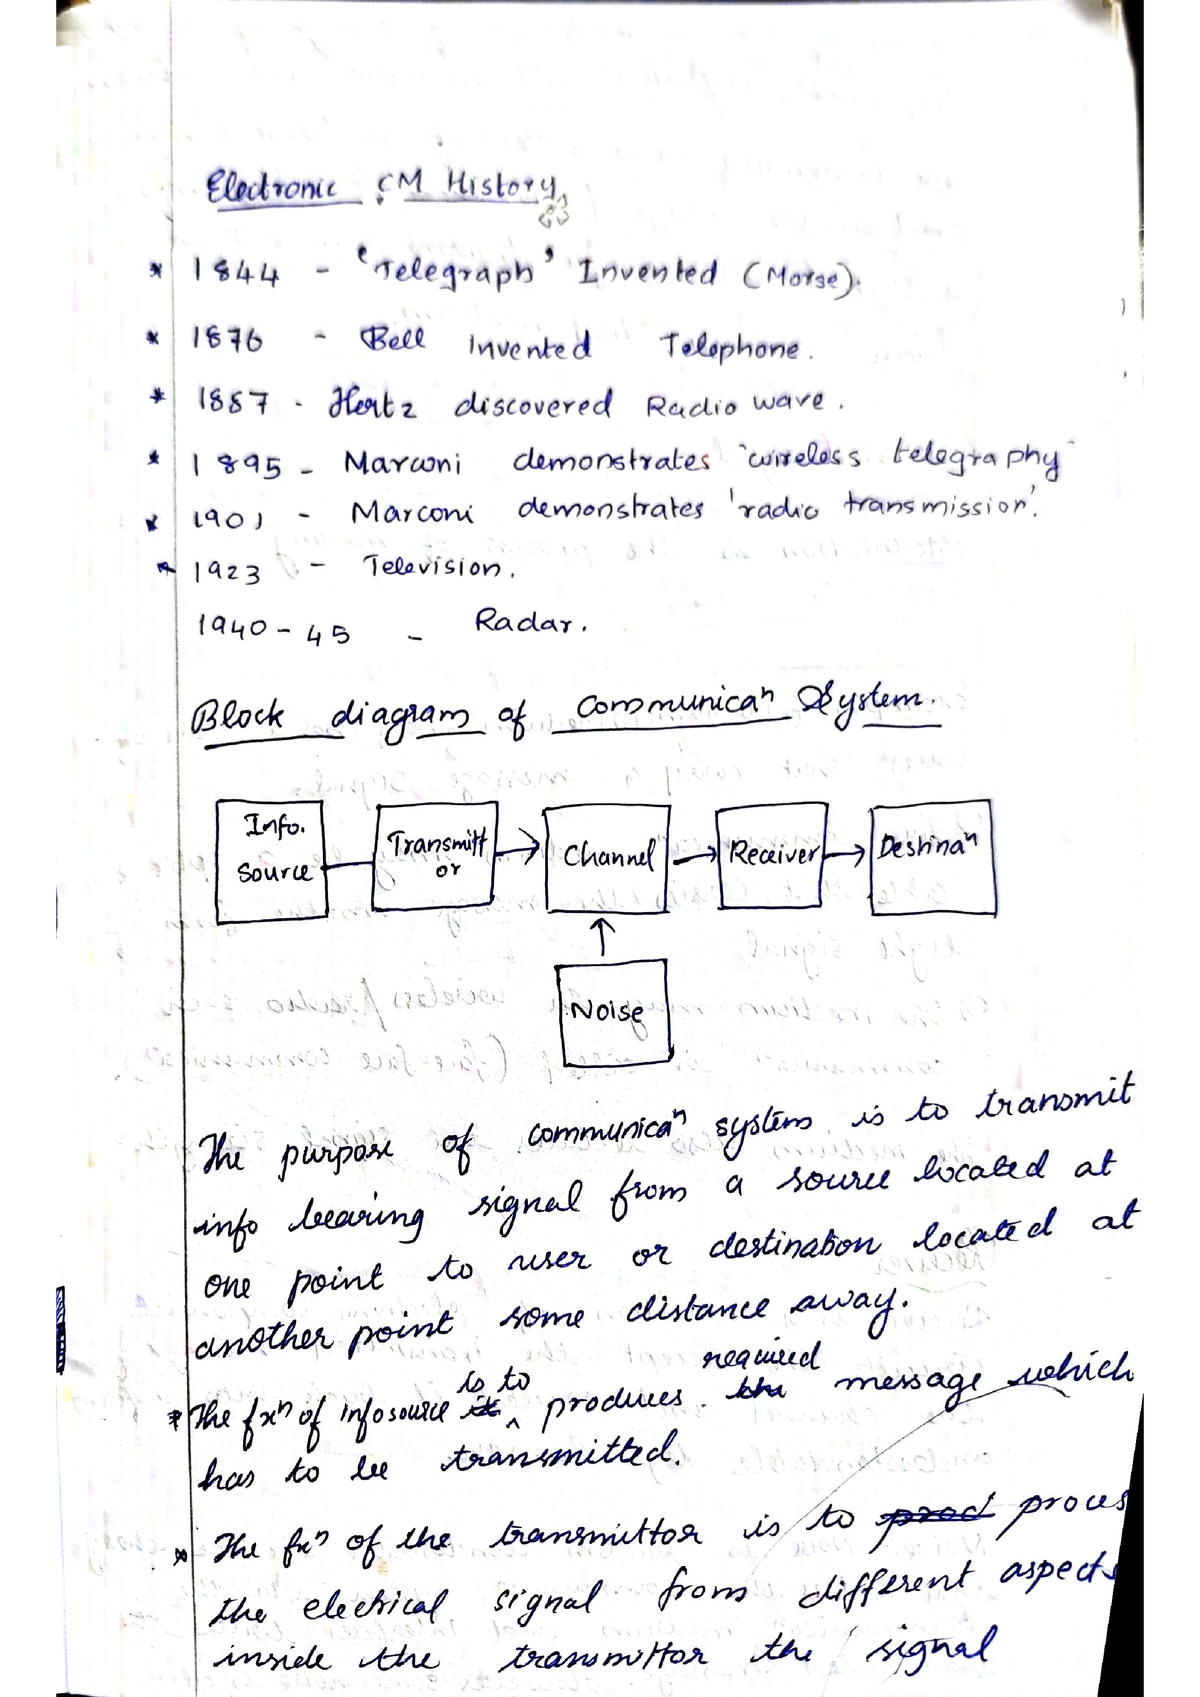 Electronic CM History
* 1844 - 'Telegraph' Invented (Morse).
* 1876 - Bell invented Telephone.
* 1887 - Hertz discovered Radio wave.
* 1895 - Marconi demonstrates "wireless telegraphy"
* 1901 - Marconi demonstrates 'radio transmission'.
* 1923 - Television.
1940-45 - Radar.
Block diagram of Communicaⁿ System.
Info. Source
Transmittor
Channel
Receiver
Destinaⁿ
Noise
The purpose of communicaⁿ system is to transmit
info bearing signal from a source located at
one point to user or destination located at
another point some distance away.
* The fxⁿ of info source is to produces required message which
has to be transmitted.
* The fxⁿ of the transmittor is to proces
the electrical signal from different aspects
inside the transmittor the signal